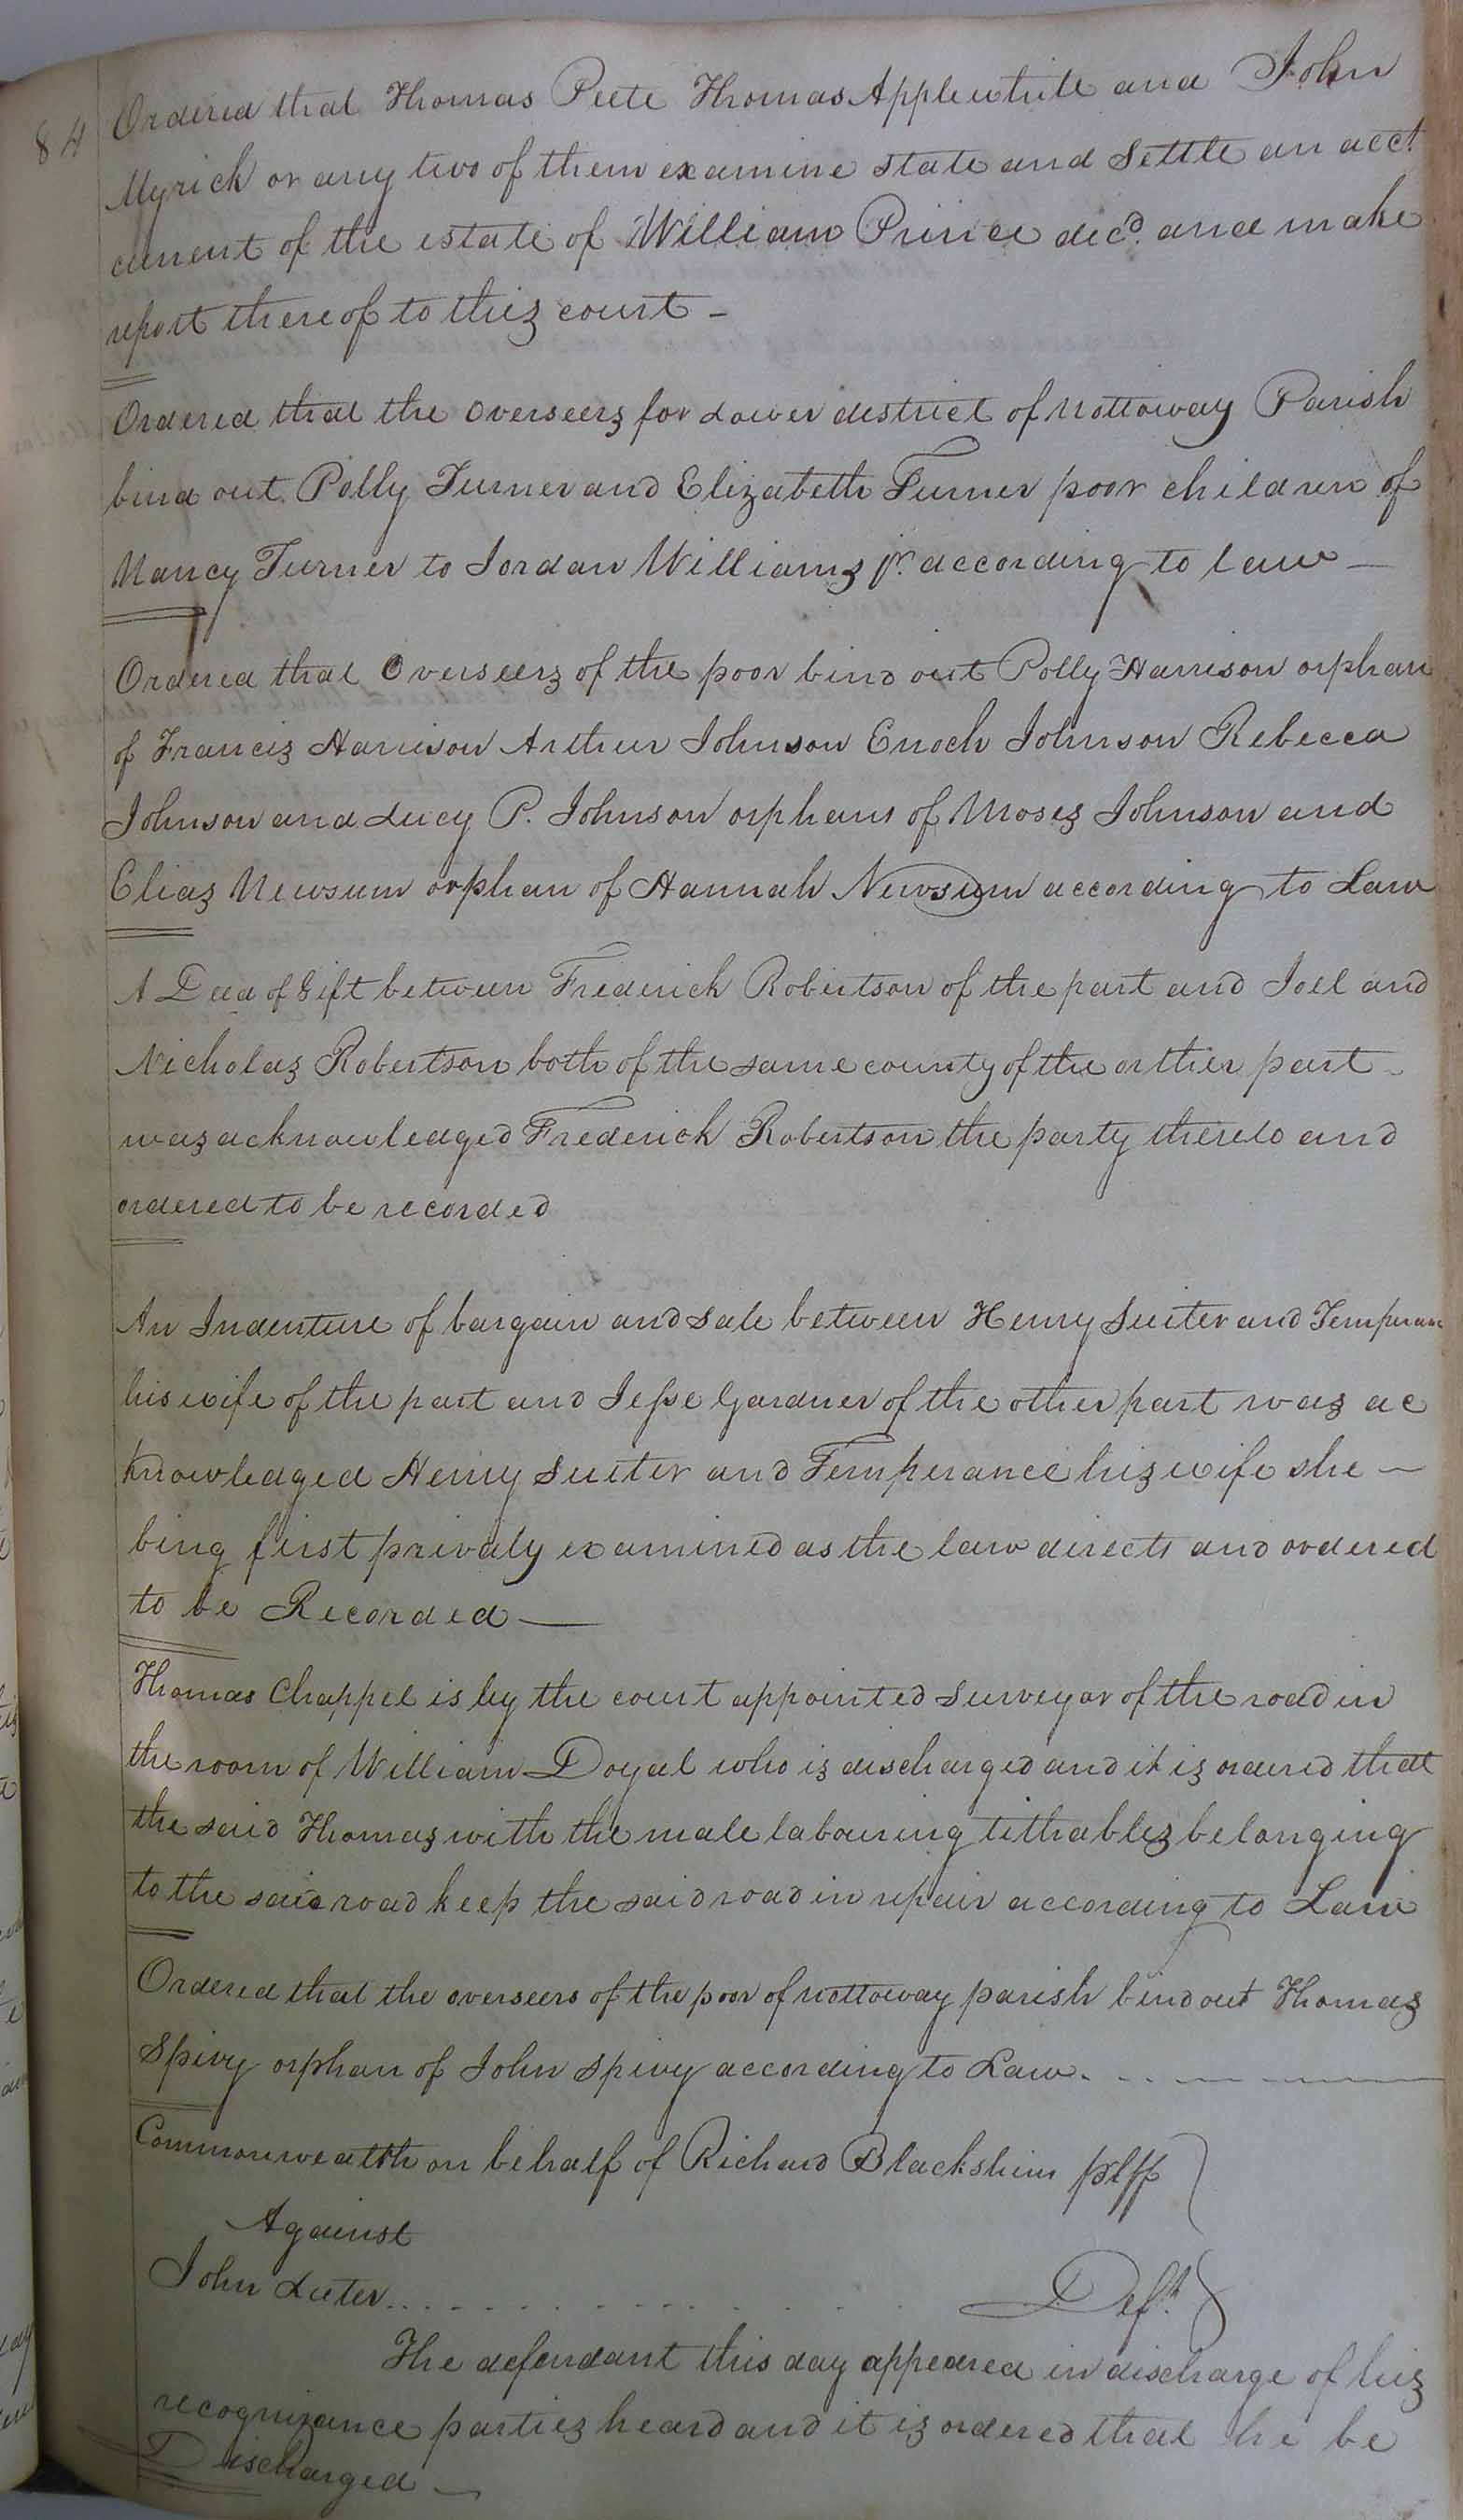 84
Ordered that Thomas Peete Thomas Applewhite and John
Myrick or any two of them examine state and Settle an acct.
current of the estate of William Prince decd. and make
report thereof to this court -
Ordered that the Overseers for Lower district of Nottoway Parish
bind out Polly Turner and Elizabeth Turner poor children of
Nancy Turner to Jordan Williams jr. according to law -
Ordered that Overseers of the poor bind out Polly Harrison orphan
of Francis Harrison Arthur Johnson Enoch Johnson Rebecca
Johnson and Lucy P. Johnson orphans of Moses Johnson and
Elias Newsum orphan of Hannah Newsum according to Law
A Deed of Gift between Frederick Robertson of the part and Joel and
Nicholas Robertson both of the same county of the orther part -
was acknowledged Frederick Robertson the party thereto and
ordered to be recorded
An Indenture of bargain and Sale between Henry Suiter and Temperance
his wife of the part and Jesse Gardner of the other part was ac
knowledged Henry Suiter and Temperance his wife she -
bing first privaly examined as the law directs and ordered
to be Recorded -
Thomas Chappel is by the court appointed Surveyor of the road in
the room of William Doyal who is discharged and it is ordered that
the said Thomas with the male labouring tithables belonging
to the said road keep the said road in repair according to Law
Ordered that the overseers of the poor of nottoway parish bind out Thomas
Spivy orphan of John Spivy according to Law.
Commonwealth on behalf of Richard Blackshins plff
Against
John Luter Deft.
The defendant this day appeared in discharge of his
recognizance parties heard and it is ordered that he be
Discharged -